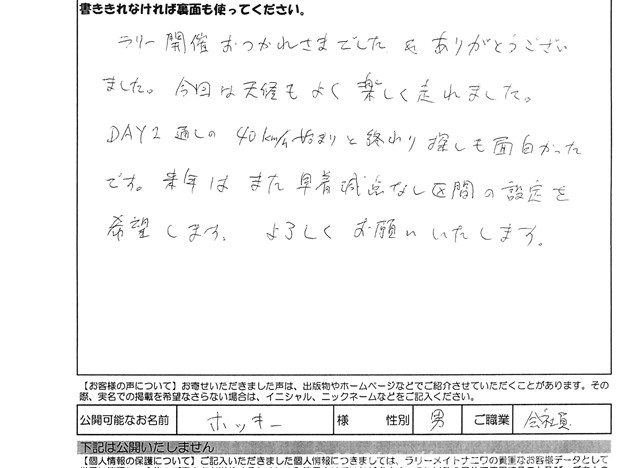 書ききれなければ裏面も使ってください。
ラリー開催おつかれさまでした & ありがとうござい
ました。今回は天候もよく楽しく走れました。
DAY2 通しの 40km/h 始まりと終わり探しも面白かった
です。来年はまた早着減点なし区間の設定を
希望します。 よろしくお願いいたします。
【お客様の声について】お寄せいただきました声は、出版物やホームページなどでご紹介させていただくことがあります。その
際、実名での掲載を希望なさらない場合は、イニシャル、ニックネームなどをご記入ください。
公開可能なお名前 ホッキー 様 性別 男 ご職業 会社員
下記は公開いたしません
【個人情報の保護について】ご記入いただきました個人情報につきましては、ラリーメイトナニワの貴重なお客様データとして